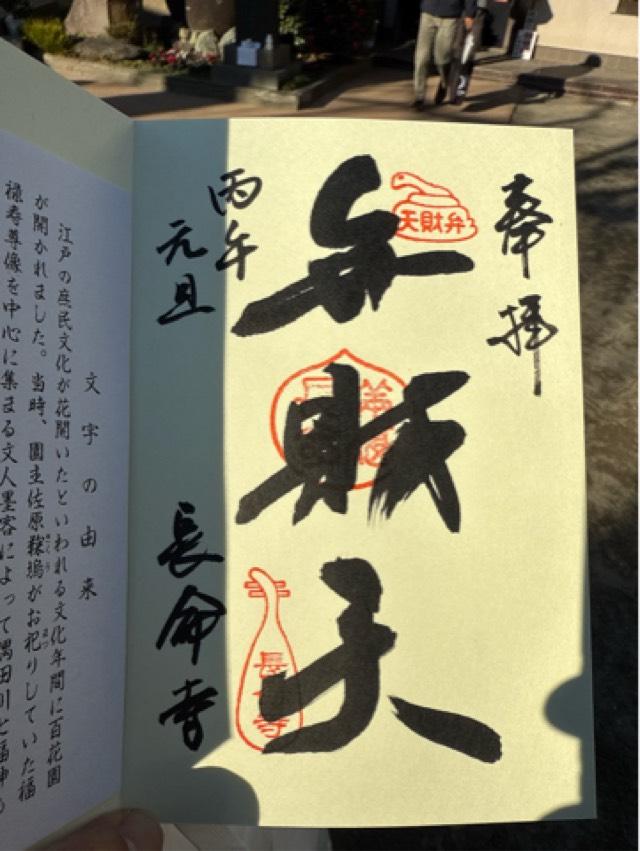 奉拝
弁財天
弁財天
丙午
元旦
長命寺
長命寺
文字の由来
江戸の庶民文化が花開いたといわれる文化年間に百花園
が開かれました。当時、園主佐原鞠塢がお祀りしていた福
禄寿尊像を中心に集まる文人墨客によって隅田川と福神